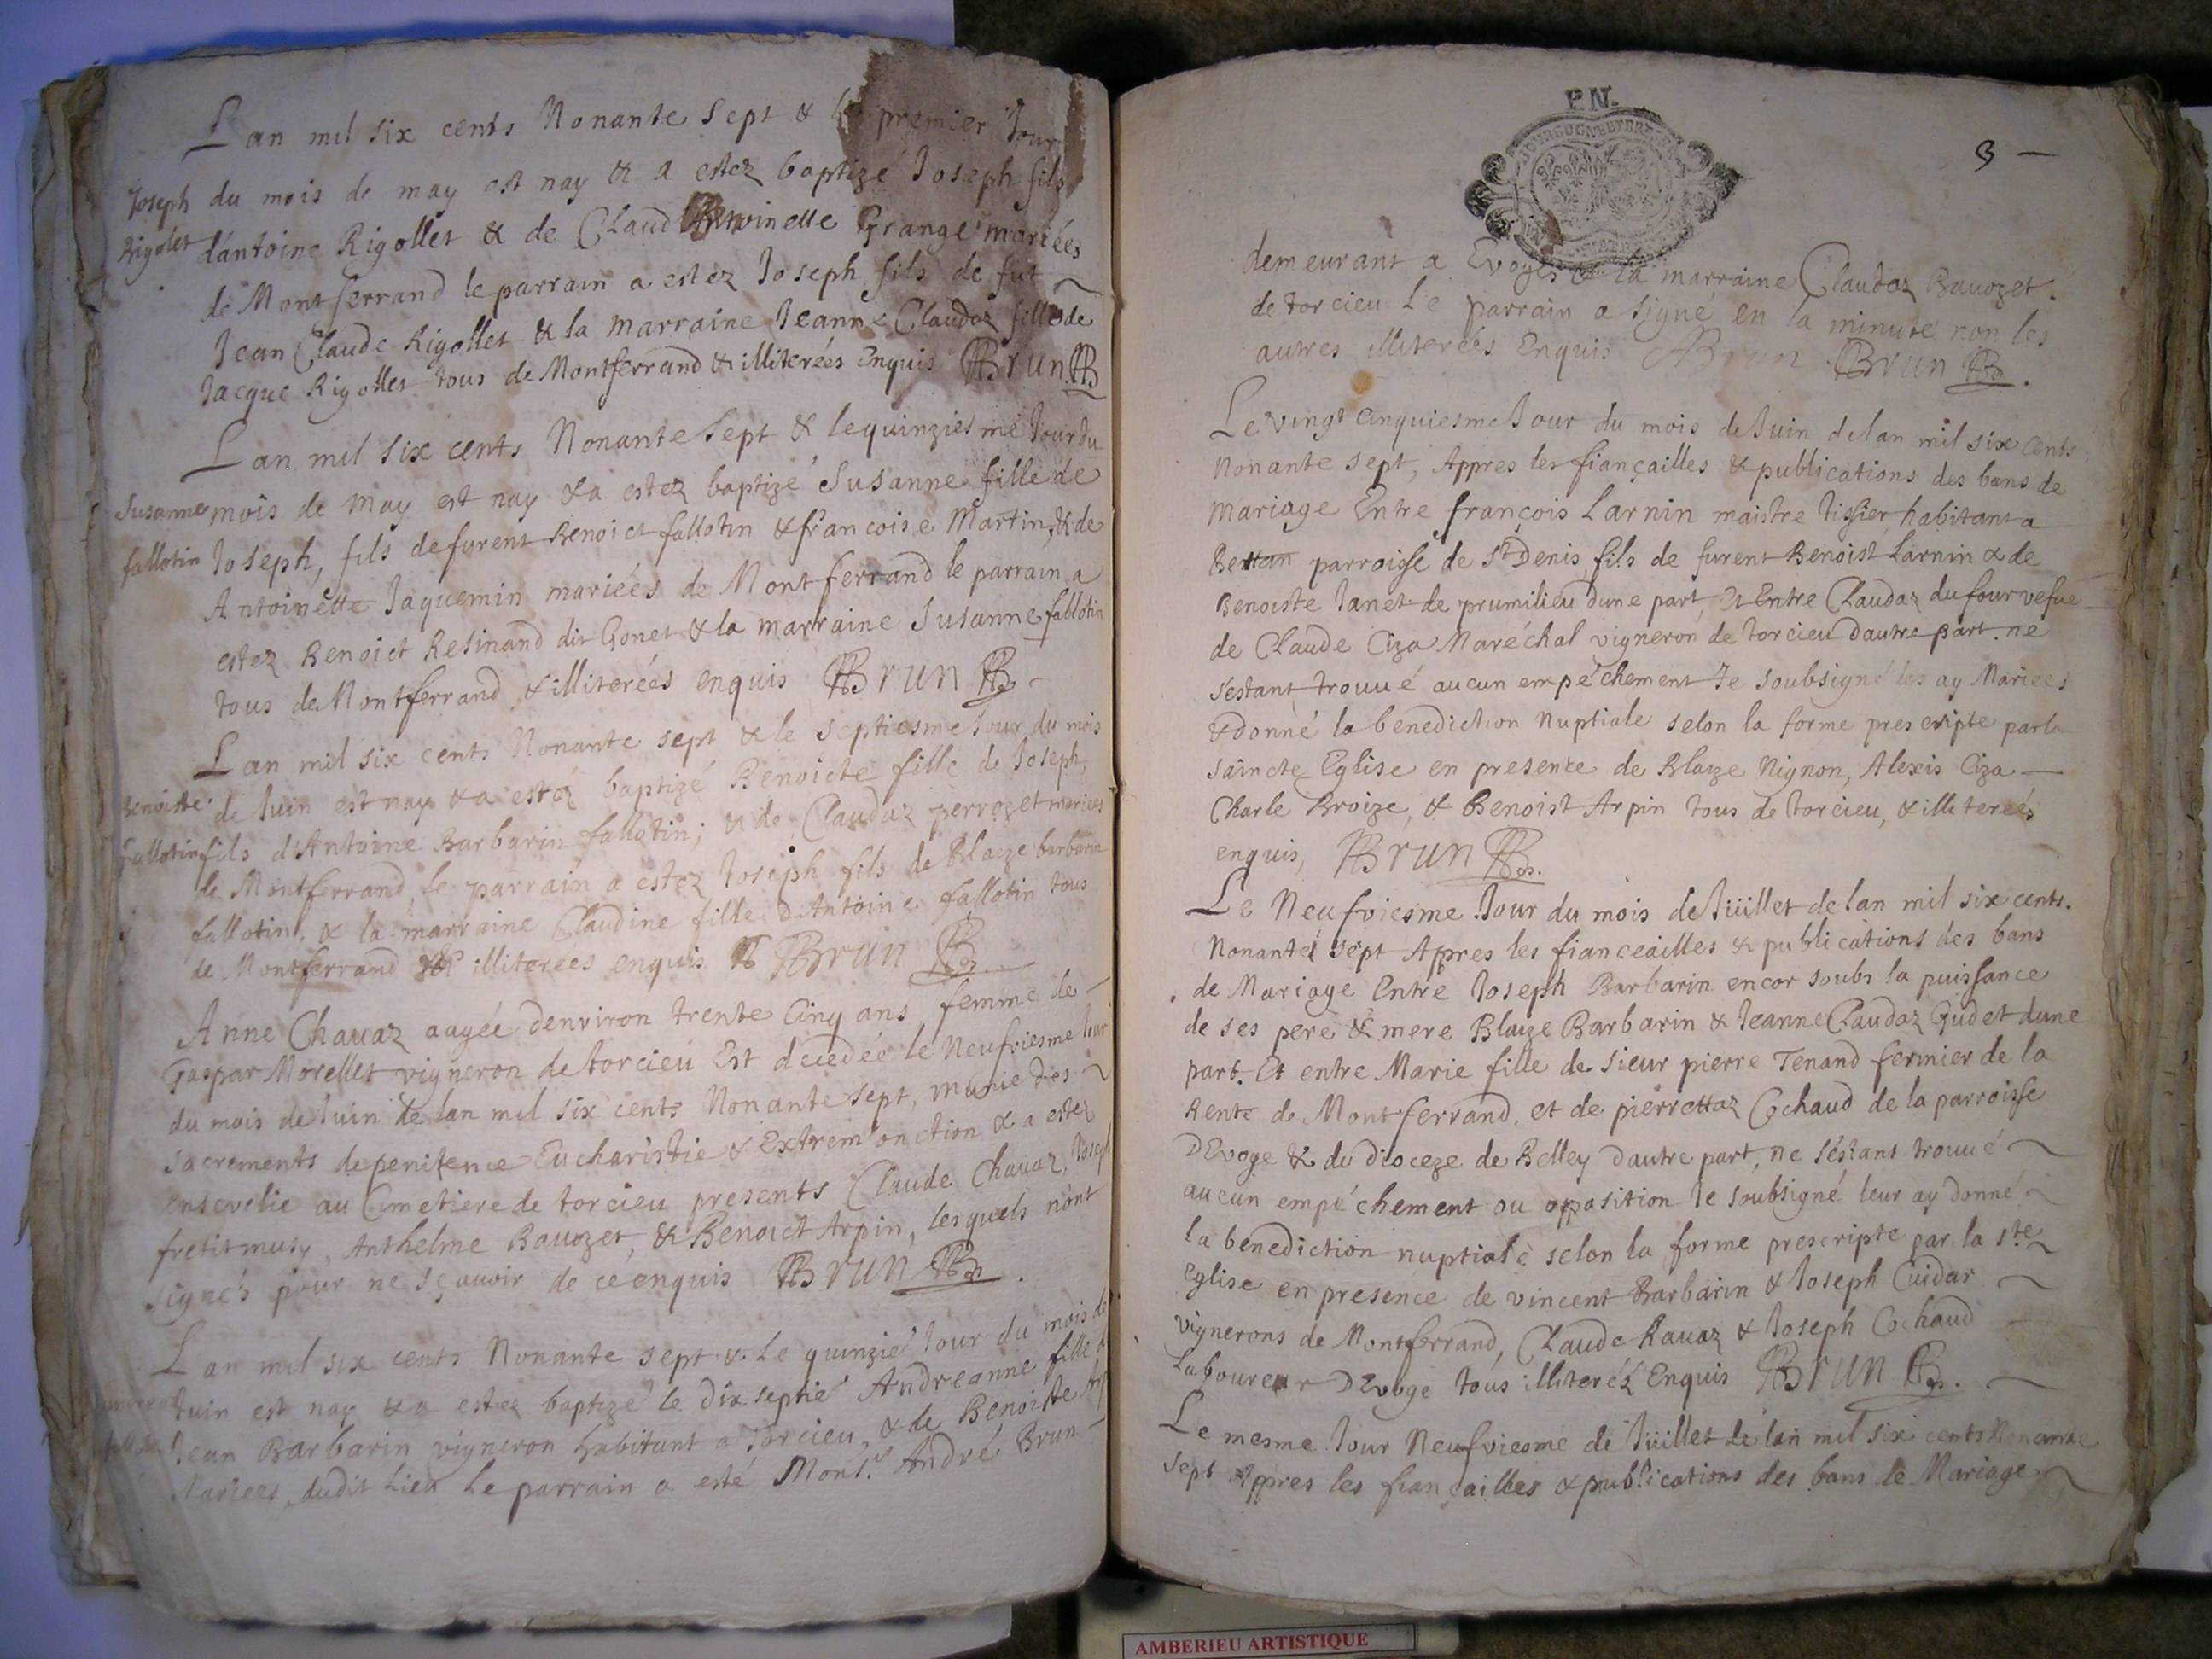 Lan mil six cents Nonante Sept & le premier Jour
Joseph du mois de may est nay & a estez baptizé Joseph fils
Rigolet d'antoine Rigollet & de Claud Antoinette Grange mariées
de Montferrand le parrain a estez Joseph fils de fut
Jean Claude Rigollet & la marraine Jeanne Claudaz fille de
Jacque Rigollet tous de Montferrand & illiterées Enquis Brun
Lan mil six cents Nonante Sept & le quinziesme Jour du
Susanne mois de May est nay & a estez baptizé Susanne fille de
fallotin Joseph, fils defurent Benoict fallotin & francoise Martin, & de
Antoinette Jaquemin mariées de Montferrand le parrain a
estez Benoict Resinand dit Gonet & la marraine Susanne fallotin
tous de Montferrand & illiterées enquis Brun
Lan mil six cents Nonante sept & le septiesme Jour du mois
Benoiste de Juin est nay & a estez baptizé Benoicte fille de Joseph,
fallotin fils d'Antoine Barbarin fallotin; & de Claudaz perrozet mariees
de Montferrand, le parrain a estez Joseph fils de Blaize barbarin
fallotin, & la marraine Claudine fille d'Antoine fallotin tous
de Montferrand & illiterees enquis Brun
Anne Chavaz aagée denviron trente Cinq ans femme de
Gaspar Morellet vigneron de torcieu Est decedée le Neufviesme Jour
du mois de Juin de lan mil six cents Nonante sept, munie des
sacrements de penitence Eucharistie & Extrem'onction & a estez
ensevelie au Cimetiere de torcieu presents Claude Chavaz, Joseph
fretit musy, Anthelme Bavozet, & Benoict Arpin, lesquels n'ont
signés pour ne sçavoir de ce enquis Brun
Lan mil six cents Nonante sept & le quinzié Jour du mois de
Juin est nay & a estez baptizé le dix septié Andreanne fille de
Jean Barbarin vigneron habitant a Torcieu, & de Benoiste Arp
Mariees dudit Lieu Le parrain a esté Mons.r André Brun
P.N.
BOURGOGNE ET BRESSE
3
demeurant a Evoges & la marraine Claudaz Bavozet.
de torcieu Le parrain a signé en la minute non les
autres illiterées Enquis Brun Brun
Le vingt cinquiesme Jour du mois de Juin de lan mil six cents
Nonante sept, Appres les fiançailles & publications des bans de
mariage Entre françois Larnin maistre tissier habitant a
Bettan parroisse de St Denis fils de furent Benoist Larnin & de
Benoiste Janet de prumilieu dune part, Et Entre Claudaz dufour vefue
de Claude Ciza Maréchal vigneron de torcieu dautre part. ne
s'estant trouué aucun empéchement Je soubsigné les ay Mariees
& donné la benediction Nuptiale selon la forme prescripte par la
saincte Eglise en presence de Blaize Nignon, Alexis Ciza
Charle Broize, & Benoist Arpin tous de torcieu, & illiterées
enquis, Brun
Le Neufviesme Jour du mois de Jüillet de lan mil six cents.
Nonante sept Appres les fianceailles & publications des bans
de Mariage Entre Joseph Barbarin encor soubs la puissance
de ses pere & mere Blaize Barbarin & Jeanne Claudaz Gudet dune
part. Et entre Marie fille de sieur pierre Tenand fermier de la
Rente de Montferrand, et de pierrettaz Cochaud de la parroisse
DEvoge & du dioceze de Belley dautre part, ne s'éstant trouué
aucun empéchement ou opposition Je soubsigné leur ay donné
la benediction nuptiale selon la forme prescripte par la ste
Eglise en presence de vincent Barbarin & Joseph Cuidar
vignerons de Montferrand, Claude Ravaz & Joseph Cochaud
Laboureur DEvoge tous illiteréz Enquis Brun
Le mesme Jour Neufviesme de Jüillet de lan mil six cents Nonante
sept Appres les fiançailles & publications des bans de Mariage
AMBERIEU ARTISTIQUE